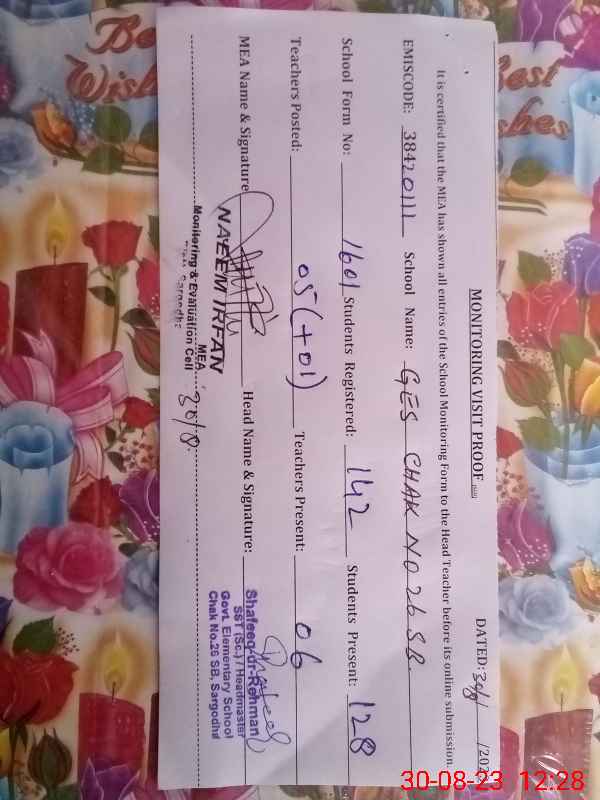 MONITORING VISIT PROOF
DATED: 30/8 /202
It is certified that the MEA has shown all entries of the School Monitoring Form to the Head Teacher before its online submission.
EMISCODE: 38420111 School Name: GES CHAK NO 26 SB.
School Form No: 1601 Students Registered: 142 Students Present: 128
Teachers Posted: 05 (+01) Teachers Present: 06
MEA Name & Signature Head Name & Signature:
NAEEM IRFAN
MEA
Monitoring & Evaluation Cell
Sargodha
30/8.
Shafeeq-ur-Rehman
SST (Sc.) / Headmaster
Govt. Elementary School
Chak No.26 SB, Sargodha
Best
Wishes
30-08-23 12:28